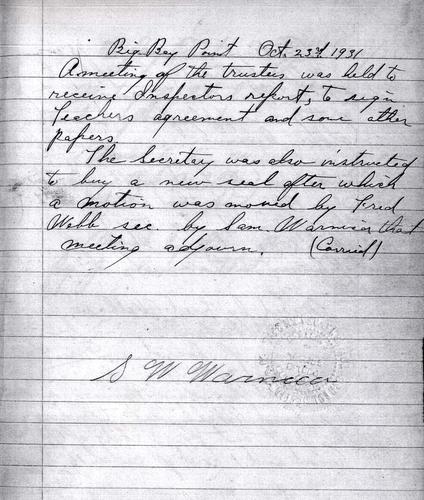 Big Bay Point Oct. 23rd, 1931
A meeting of the trustees was held to
receive Inspectors report, to sign
Teachers agreement and some other
papers.
The Secretary was also instructed
to buy a new seal after which
a motion was moved by Fred
Webb sec. by Sam. Warnica that
meeting adjourn. (Carried)
S W Warnica